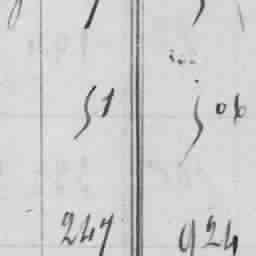 51 506
247 924